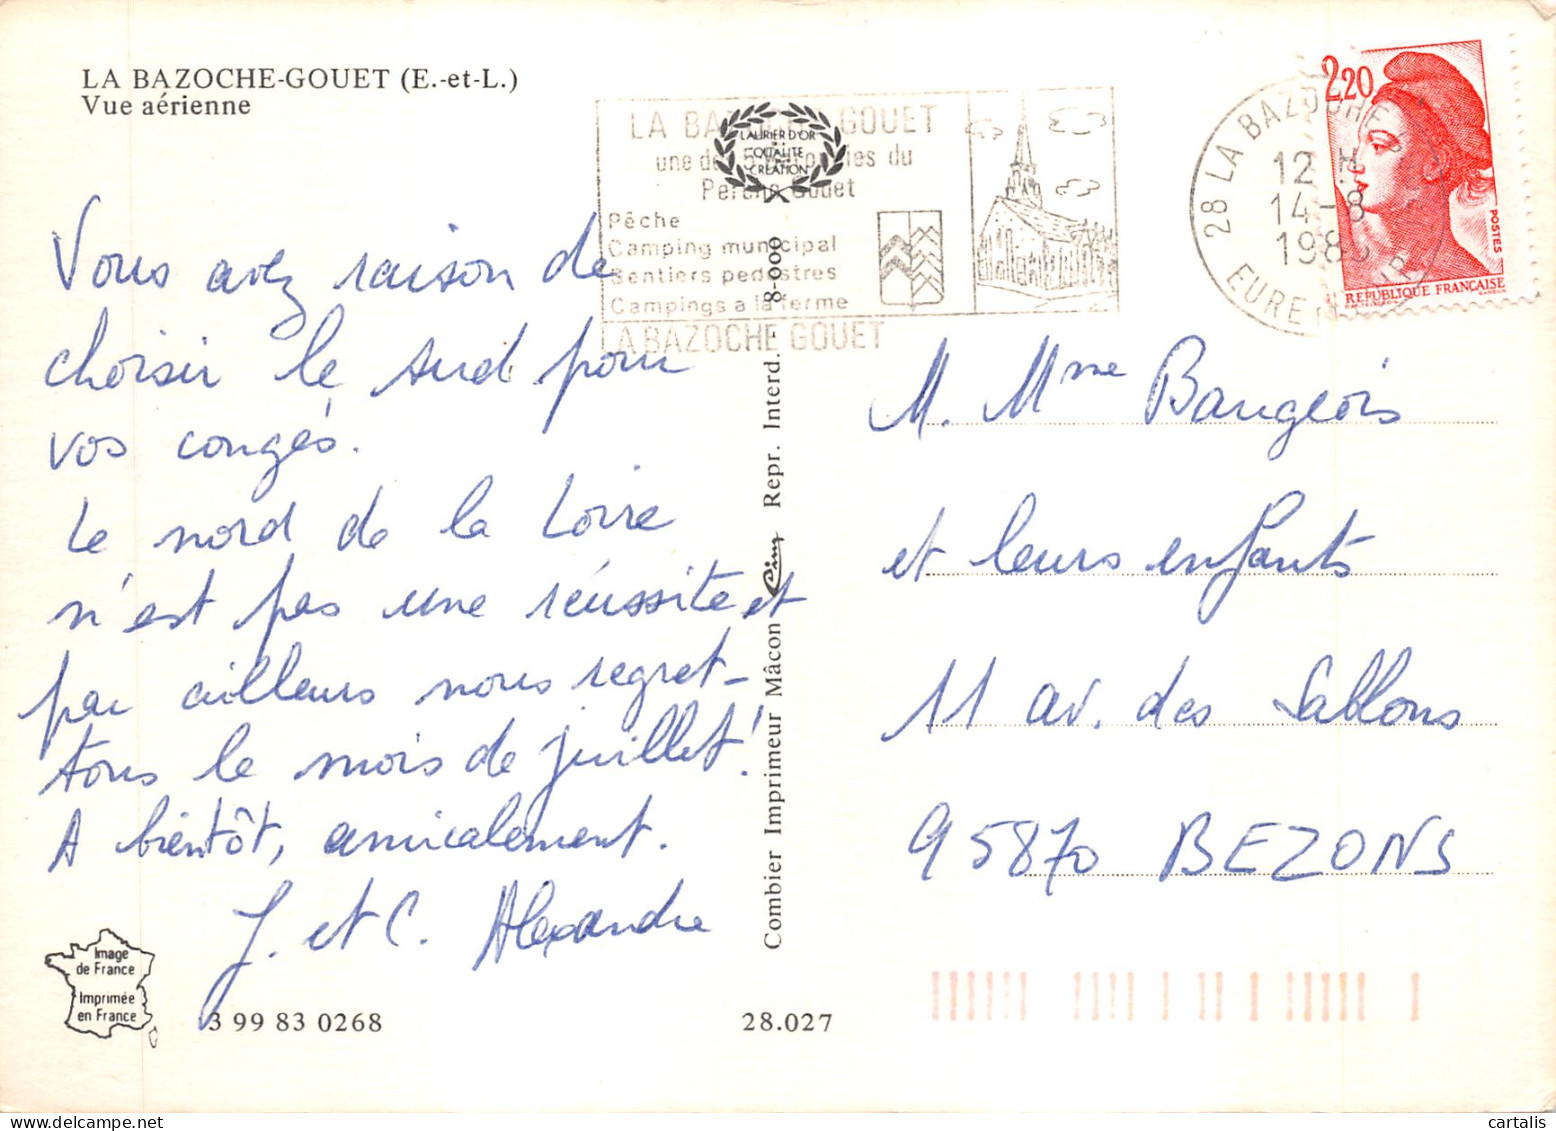 LA BAZOCHE-GOUET (E.-et-L.)
Vue aérienne
LA BAZOCHE GOUET
une des 5 du
Perche Gouet
Pêche
Camping municipal
Sentiers pedestres
Campings a la ferme
LA BAZOCHE GOUET
LAURIER D'OR
QUALITE
CREATION
28 LA BAZOCHE
12 H
14-8
EURE
2,20
POSTES
REPUBLIQUE FRANCAISE
Vous avez raison de
choisir le sud pour
vos congés.
Le nord de la Loire
n'est pas une réussite et
par ailleurs nous regret-
tons le mois de juillet!
A bientôt, amicalement.
J. et C. Alexandre
Combier Imprimeur Mâcon Cim Repr. Interd. - 8-000
M. Mme Baugeois
et leurs enfants
11 av. des Sablons
95870 BEZONS
Image
de France
Imprimée
en France
3 99 83 0268
28.027
cartalis